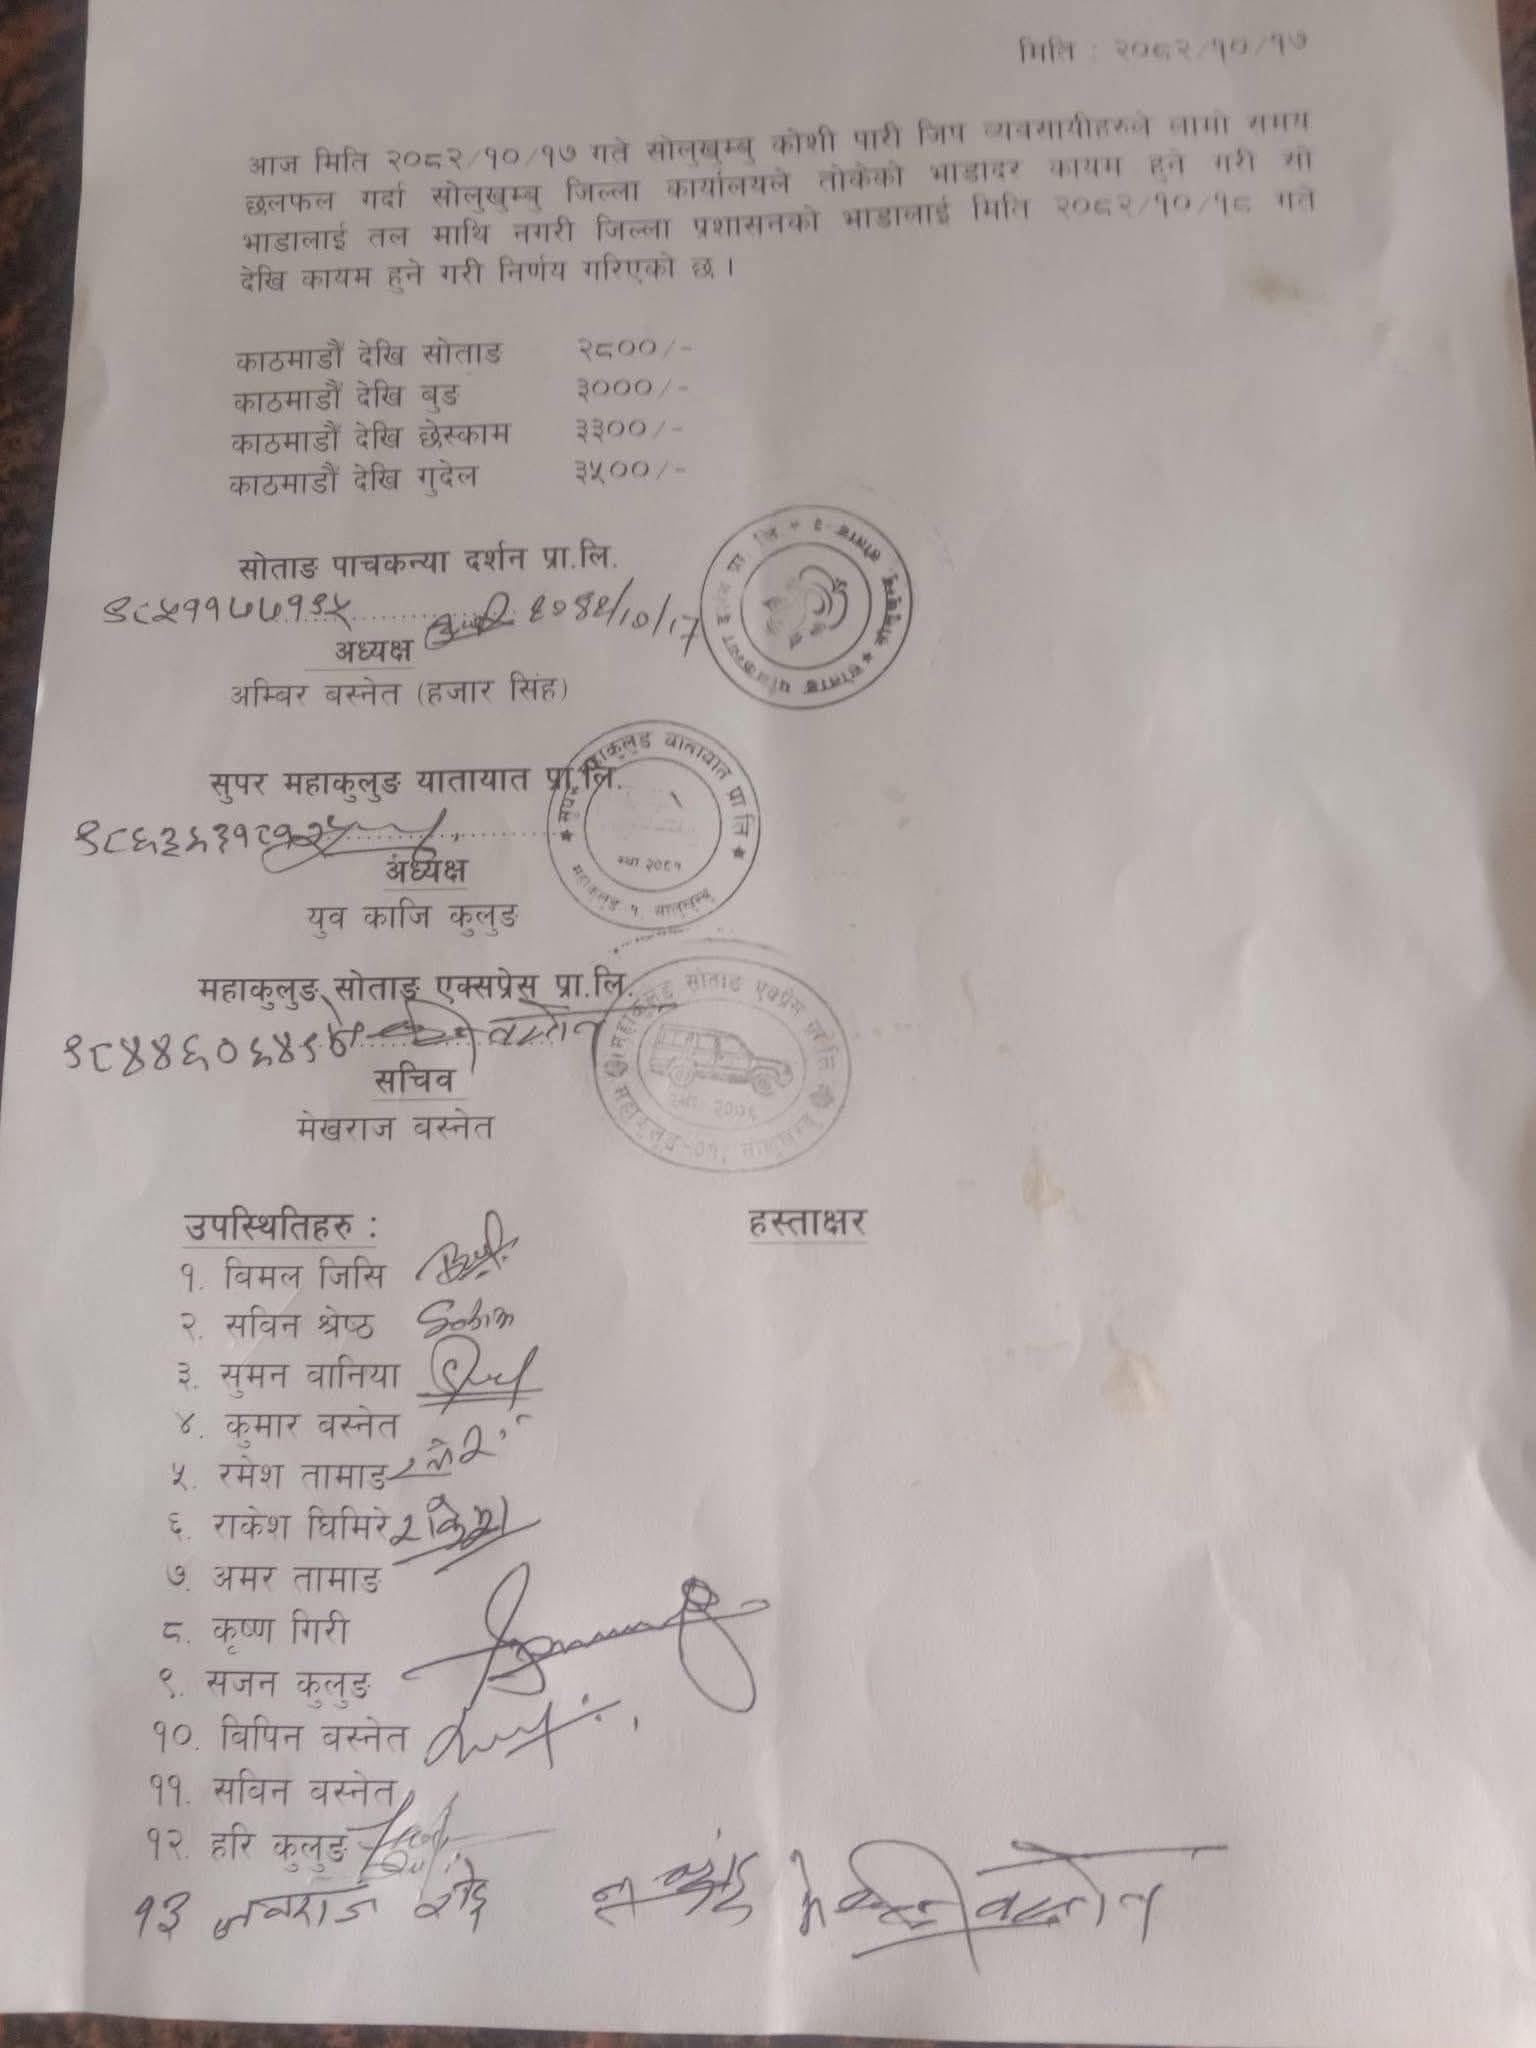 मिति : २०८२/१०/१७
आज मिति २०८२/१०/१७ गते सोलुखुम्बु कोशी पारी जिप व्यवसायीहरुले लामो समय
छलफल गर्दा सोलुखुम्बु जिल्ला कार्यालयले तोकेको भाडादर कायम हुने गरी सो
भाडालाई तल माथि नगरी जिल्ला प्रशासनको भाडालाई मिति २०८२/१०/१८ गते
देखि कायम हुने गरी निर्णय गरिएको छ ।
काठमाडौं देखि सोताङ २८००/-
काठमाडौं देखि बुङ ३०००/-
काठमाडौं देखि छेस्काम ३३००/-
काठमाडौं देखि गुदेल ३५००/-
सोताङ पाचकन्या दर्शन प्रा.लि.
९८५११७७१९५
अध्यक्ष
अम्बिर बस्नेत (हजार सिंह)
सुपर महाकुलुङ यातायात प्रा.लि.
सुपर महाकुलुङ यातायात प्रा लि
महाकुलुङ
अध्यक्ष
युव काजि कुलुङ
महाकुलुङ सोताङ एक्सप्रेस प्रा.लि.
महाकुलुङ सोताङ एक्प्रेस प्रा लि
सचिव
मेखराज वस्नेत
उपस्थितिहरु : हस्ताक्षर
१. विमल जिसि
२. सविन श्रेष्ठ
३. सुमन वानिया
४. कुमार वस्नेत
५. रमेश तामाङ
६. राकेश घिमिरे
७. अमर तामाङ
८. कृष्ण गिरी
९. सजन कुलुङ
१०. विपिन वस्नेत
११. सविन वस्नेत
१२. हरि कुलुङ
१३